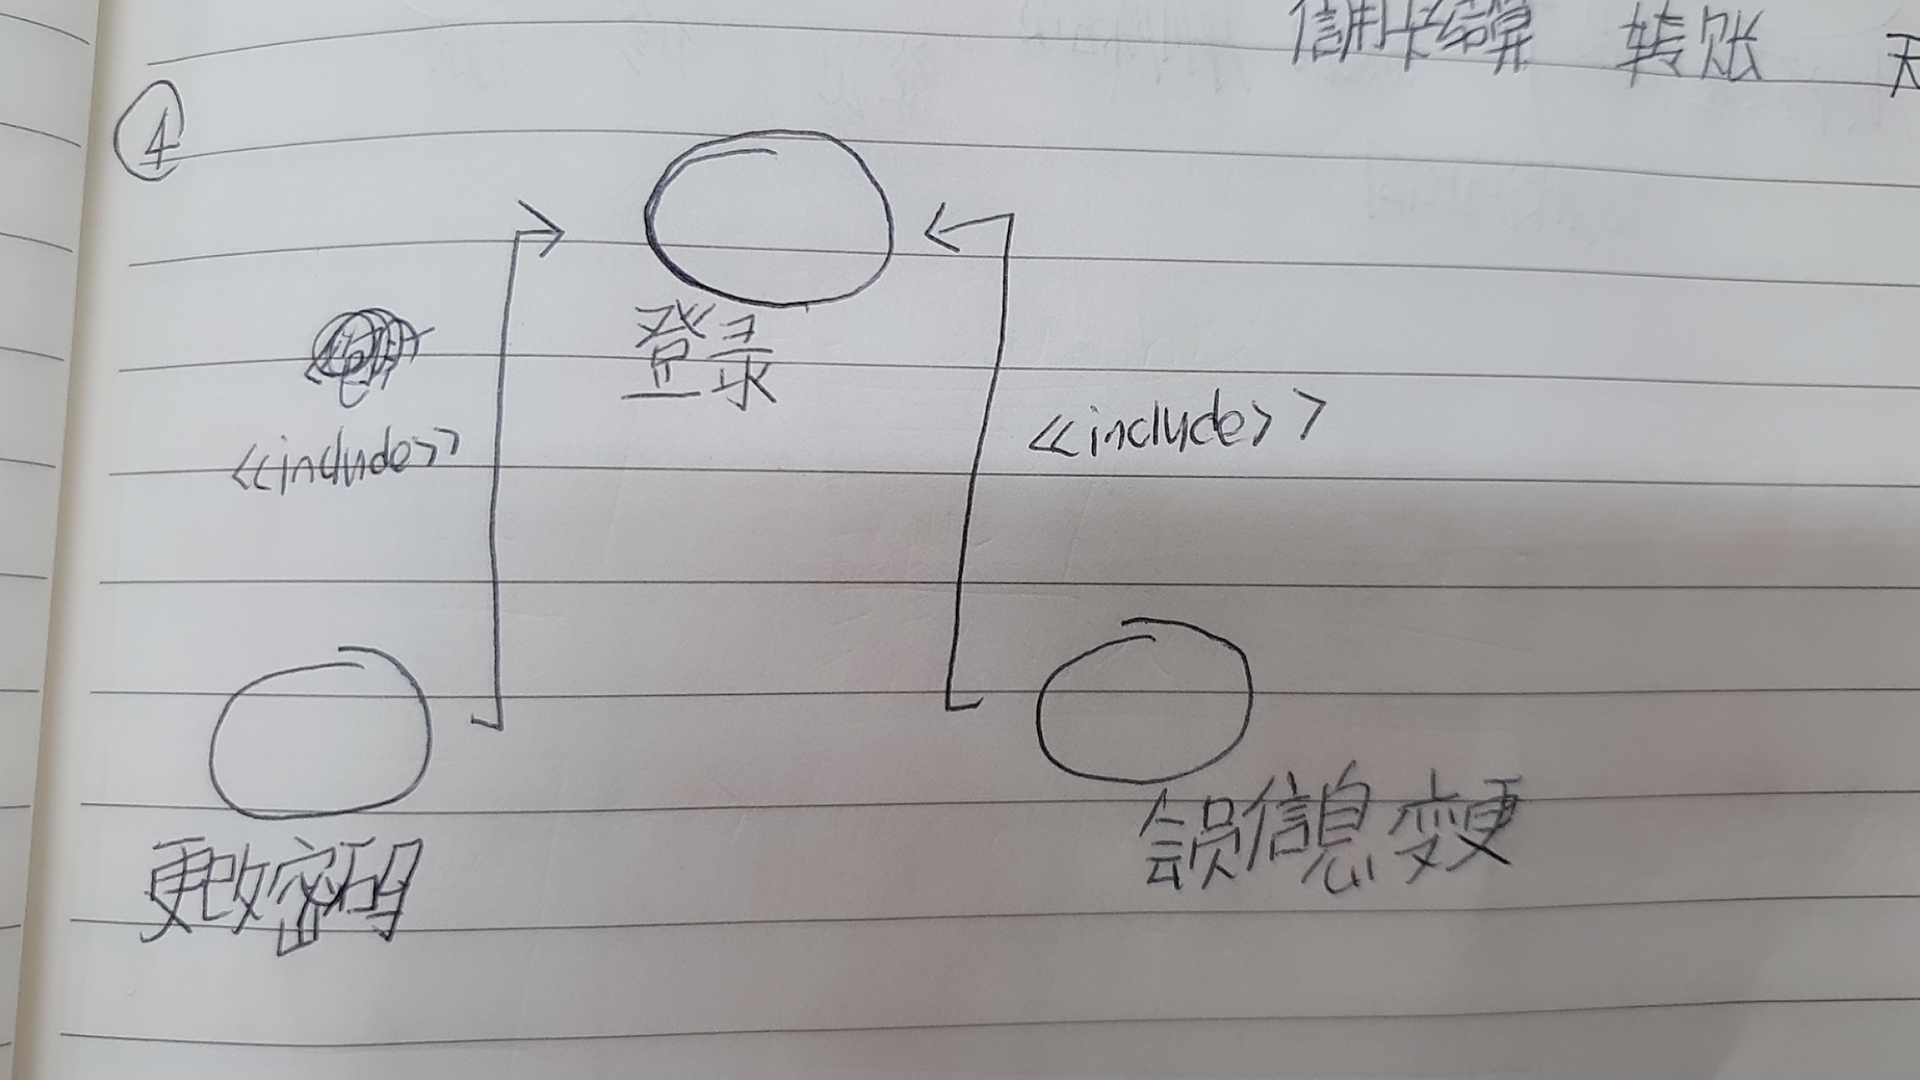 信用卡结算 转账 天
④
登录
<<include>>
<<include>>
更改密码
会员信息变更